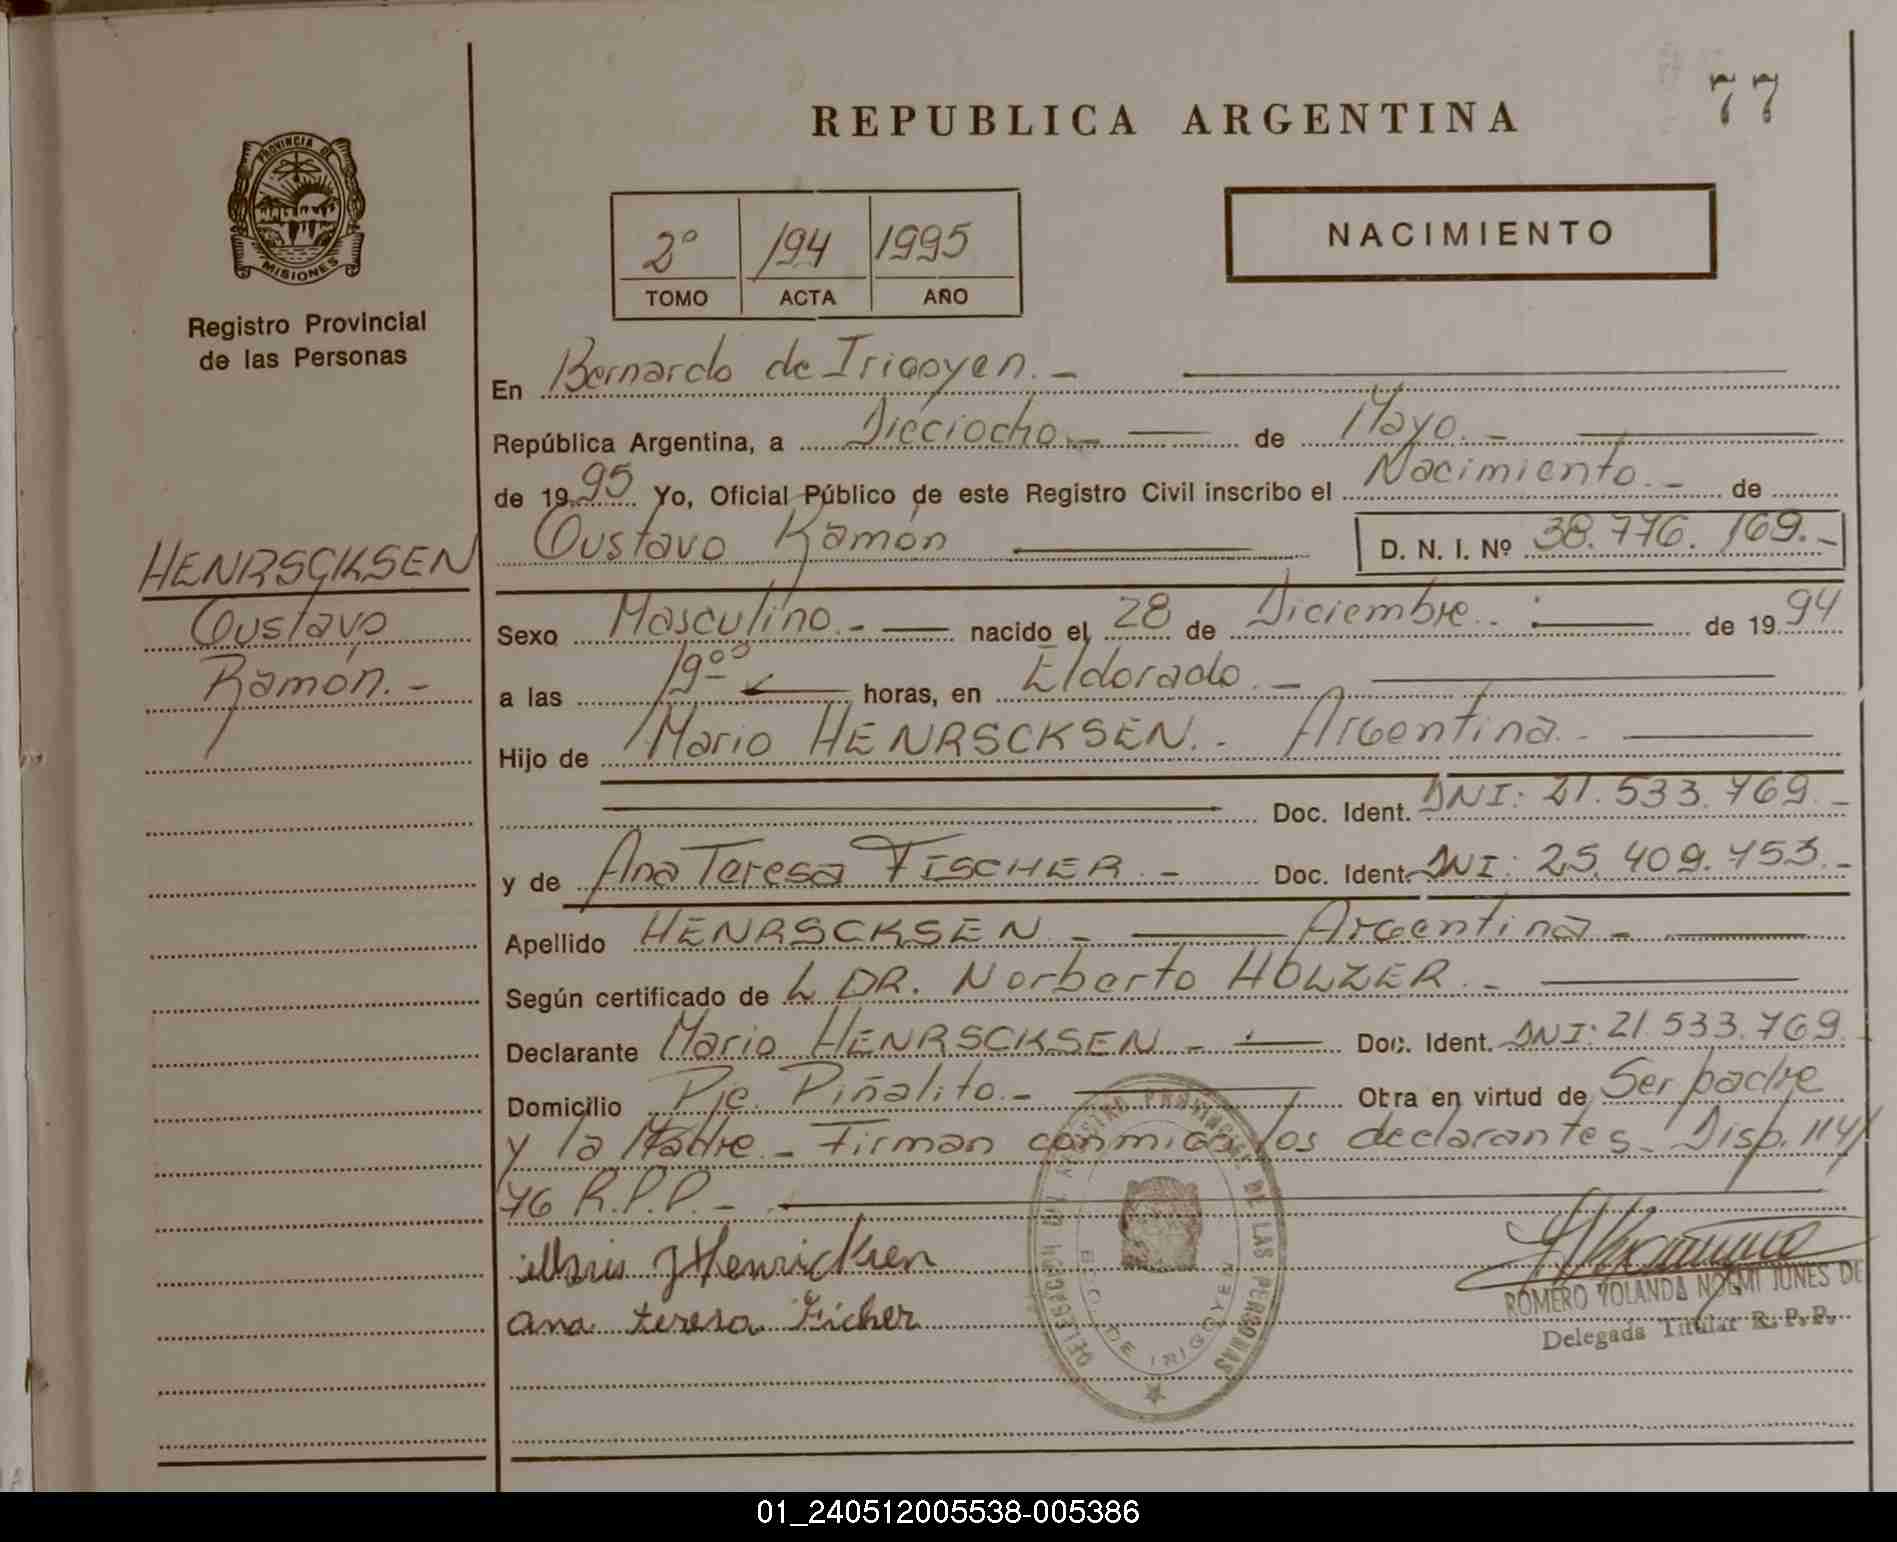 77
REPUBLICA ARGENTINA
PROVINCIA DE
MISIONES
Registro Provincial
de las Personas
2º 194 1995
TOMO ACTA AÑO
NACIMIENTO
En Bernardo de Irigoyen.-
República Argentina, a Dieciocho.- de Mayo.-
de 1995 Yo, Oficial Público de este Registro Civil inscribo el Nacimiento.- de
Gustavo Ramón D. N. I. Nº 38.776.169.-
HENRSCKSEN
Gustavo
Ramón.-
Sexo Masculino.- nacido el 28 de Diciembre.. de 1994
a las 19ºº horas, en Eldorado.-
Hijo de Mario HENRSCKSEN.- Argentina.-
Doc. Ident. DNI: 21.533.769.-
y de Ana Teresa FISCHER.- Doc. Ident. DNI: 25.409.753.-
Apellido HENRSCKSEN.- Argentina.-
Según certificado de DR. Norberto HOLZER.-
Declarante Mario HENRSCKSEN.- Doc. Ident. DNI: 21.533.769.
Domicilio Pje. Piñalito.- Obra en virtud de Ser padre
y la Madre.- Firman conmigo los declarantes.- Disp. 114/
76 R.P.P.-
Mario Henricksen
ana teresa Ficher
REGISTRO PROVINCIAL DE LAS PERSONAS
BDO. DE IRIGOYEN
ROMERO YOLANDA NOEMI JONES DE
Delegada Titular R.P.P.
01_240512005538-005386